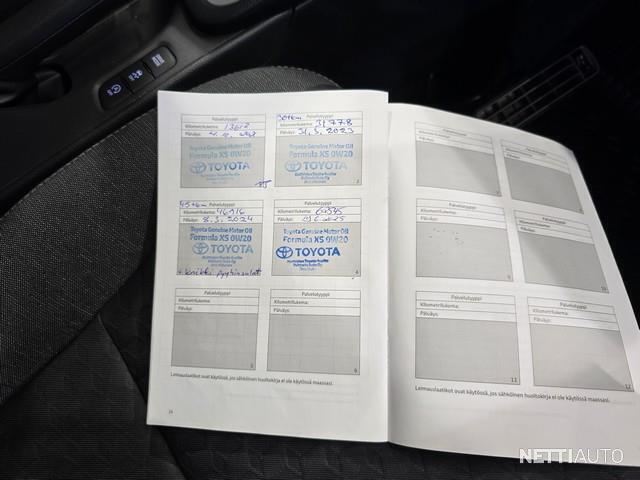 Palvelutyyppi
Kilometrilukema: 13612
Päiväys:
Toyota Genuine Motor Oil
Formula XS 0W20
TOYOTA
30tkm Palvelutyyppi
Kilometrilukema: 31778
Päiväys: 31.3.2023
Toyota Genuine Motor Oil
Formula XS 0W20
TOYOTA
2
45tkm Palvelutyyppi
Kilometrilukema: 46916
Päiväys: 8.3.2024
Toyota Genuine Motor Oil
Formula XS 0W20
TOYOTA
+ kaikki pyyhinsulat
Palvelutyyppi
Kilometrilukema: 60545
Päiväys:
Toyota Genuine Motor Oil
Formula XS 0W20
TOYOTA
4
Palvelutyyppi
Kilometrilukema:
Päiväys:
5
Palvelutyyppi
Kilometrilukema:
Päiväys:
6
Leimauslaatikot ovat käytössä, jos sähköinen huoltokirja ei ole käytössä maassasi.
24
Palvelutyyppi
Kilometrilukema:
Päiväys:
7
Palvelutyyppi
Kilometrilukema:
Päiväys:
8
Palvelutyyppi
Kilometrilukema:
Päiväys:
9
Palvelutyyppi
Kilometrilukema:
Päiväys:
10
Palvelutyyppi
Kilometrilukema:
Päiväys:
11
Palvelutyyppi
Kilometrilukema:
Päiväys:
12
Leimauslaatikot ovat käytössä, jos sähköinen huoltokirja ei ole käytössä maassasi.
NETTIAUTO